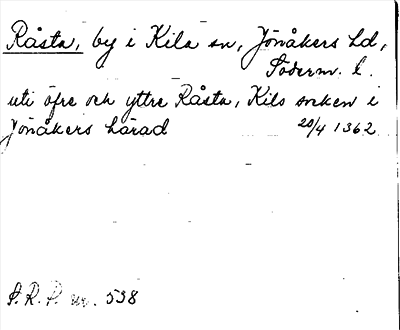 Råsta, by i Kila sn, Jönåkers hd,
Söderm. l.
uti öfre och yttre Råsta, Kils socken i
Jönåkers härad 20/4 1362
S.R.P. nr. 538